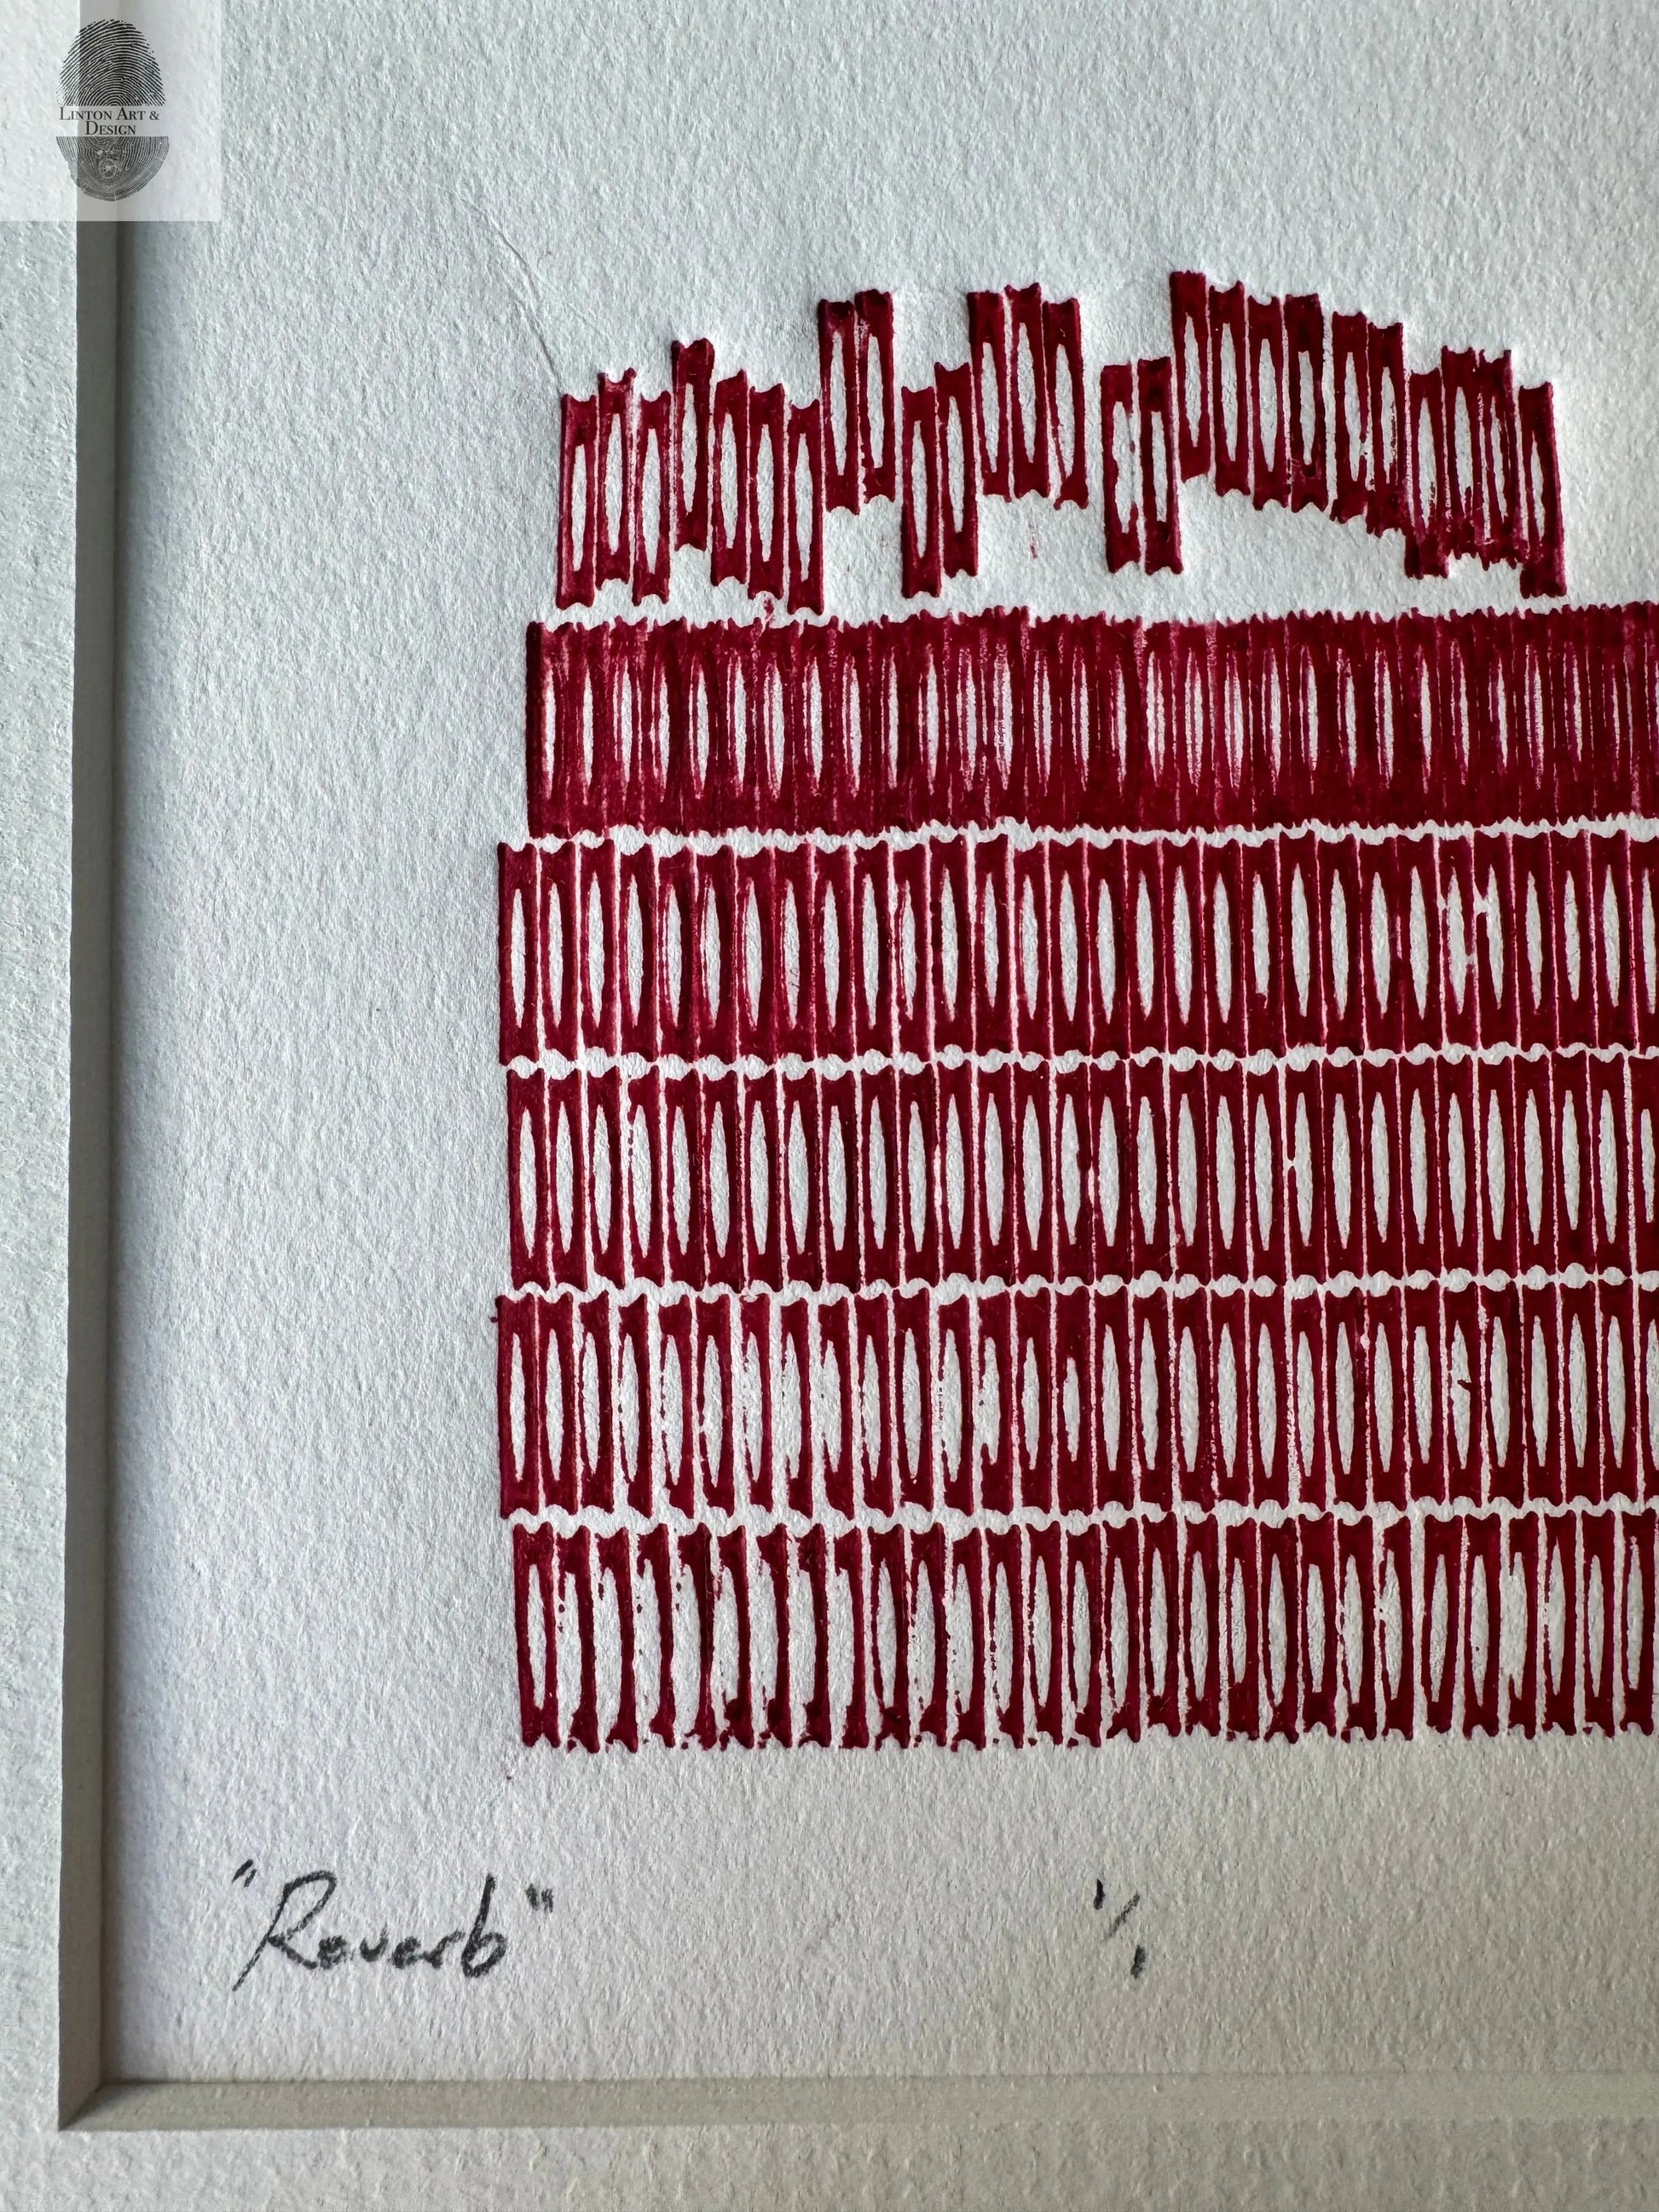 LINTON ART &
DESIGN
"Reverb"
1/1